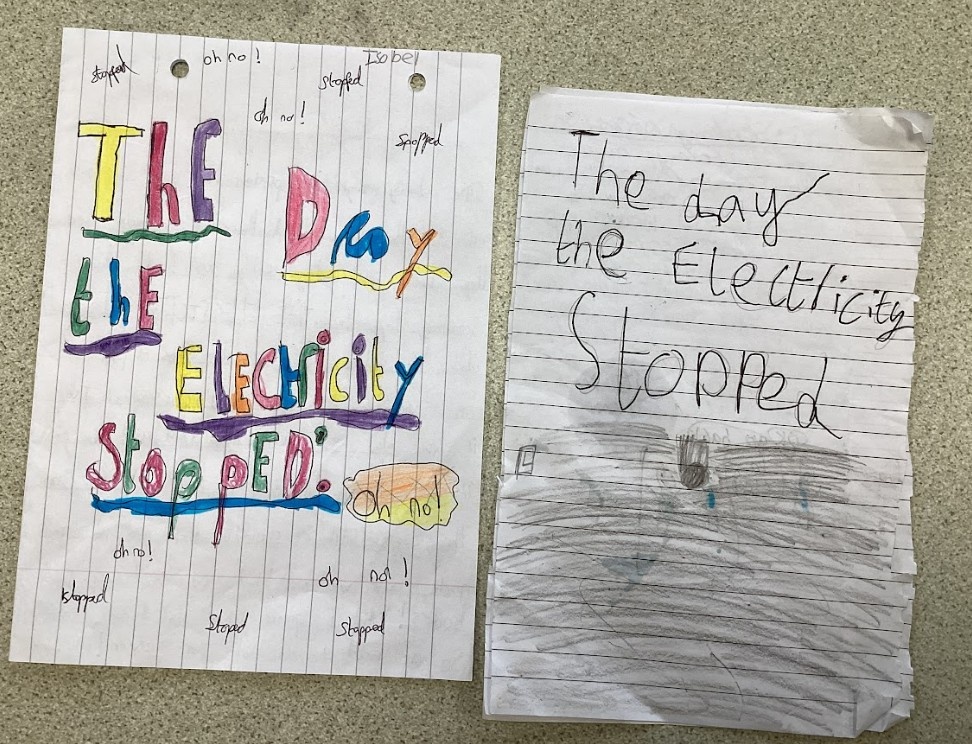 stopped oh no! stopped Isobel
oh no!
Spopped
ThE
Day
thE
ElECtricity
StoppED:
Oh no!
oh no!
oh no!
stopped
Stoped
Stopped
The day
the Electricity
Stopped